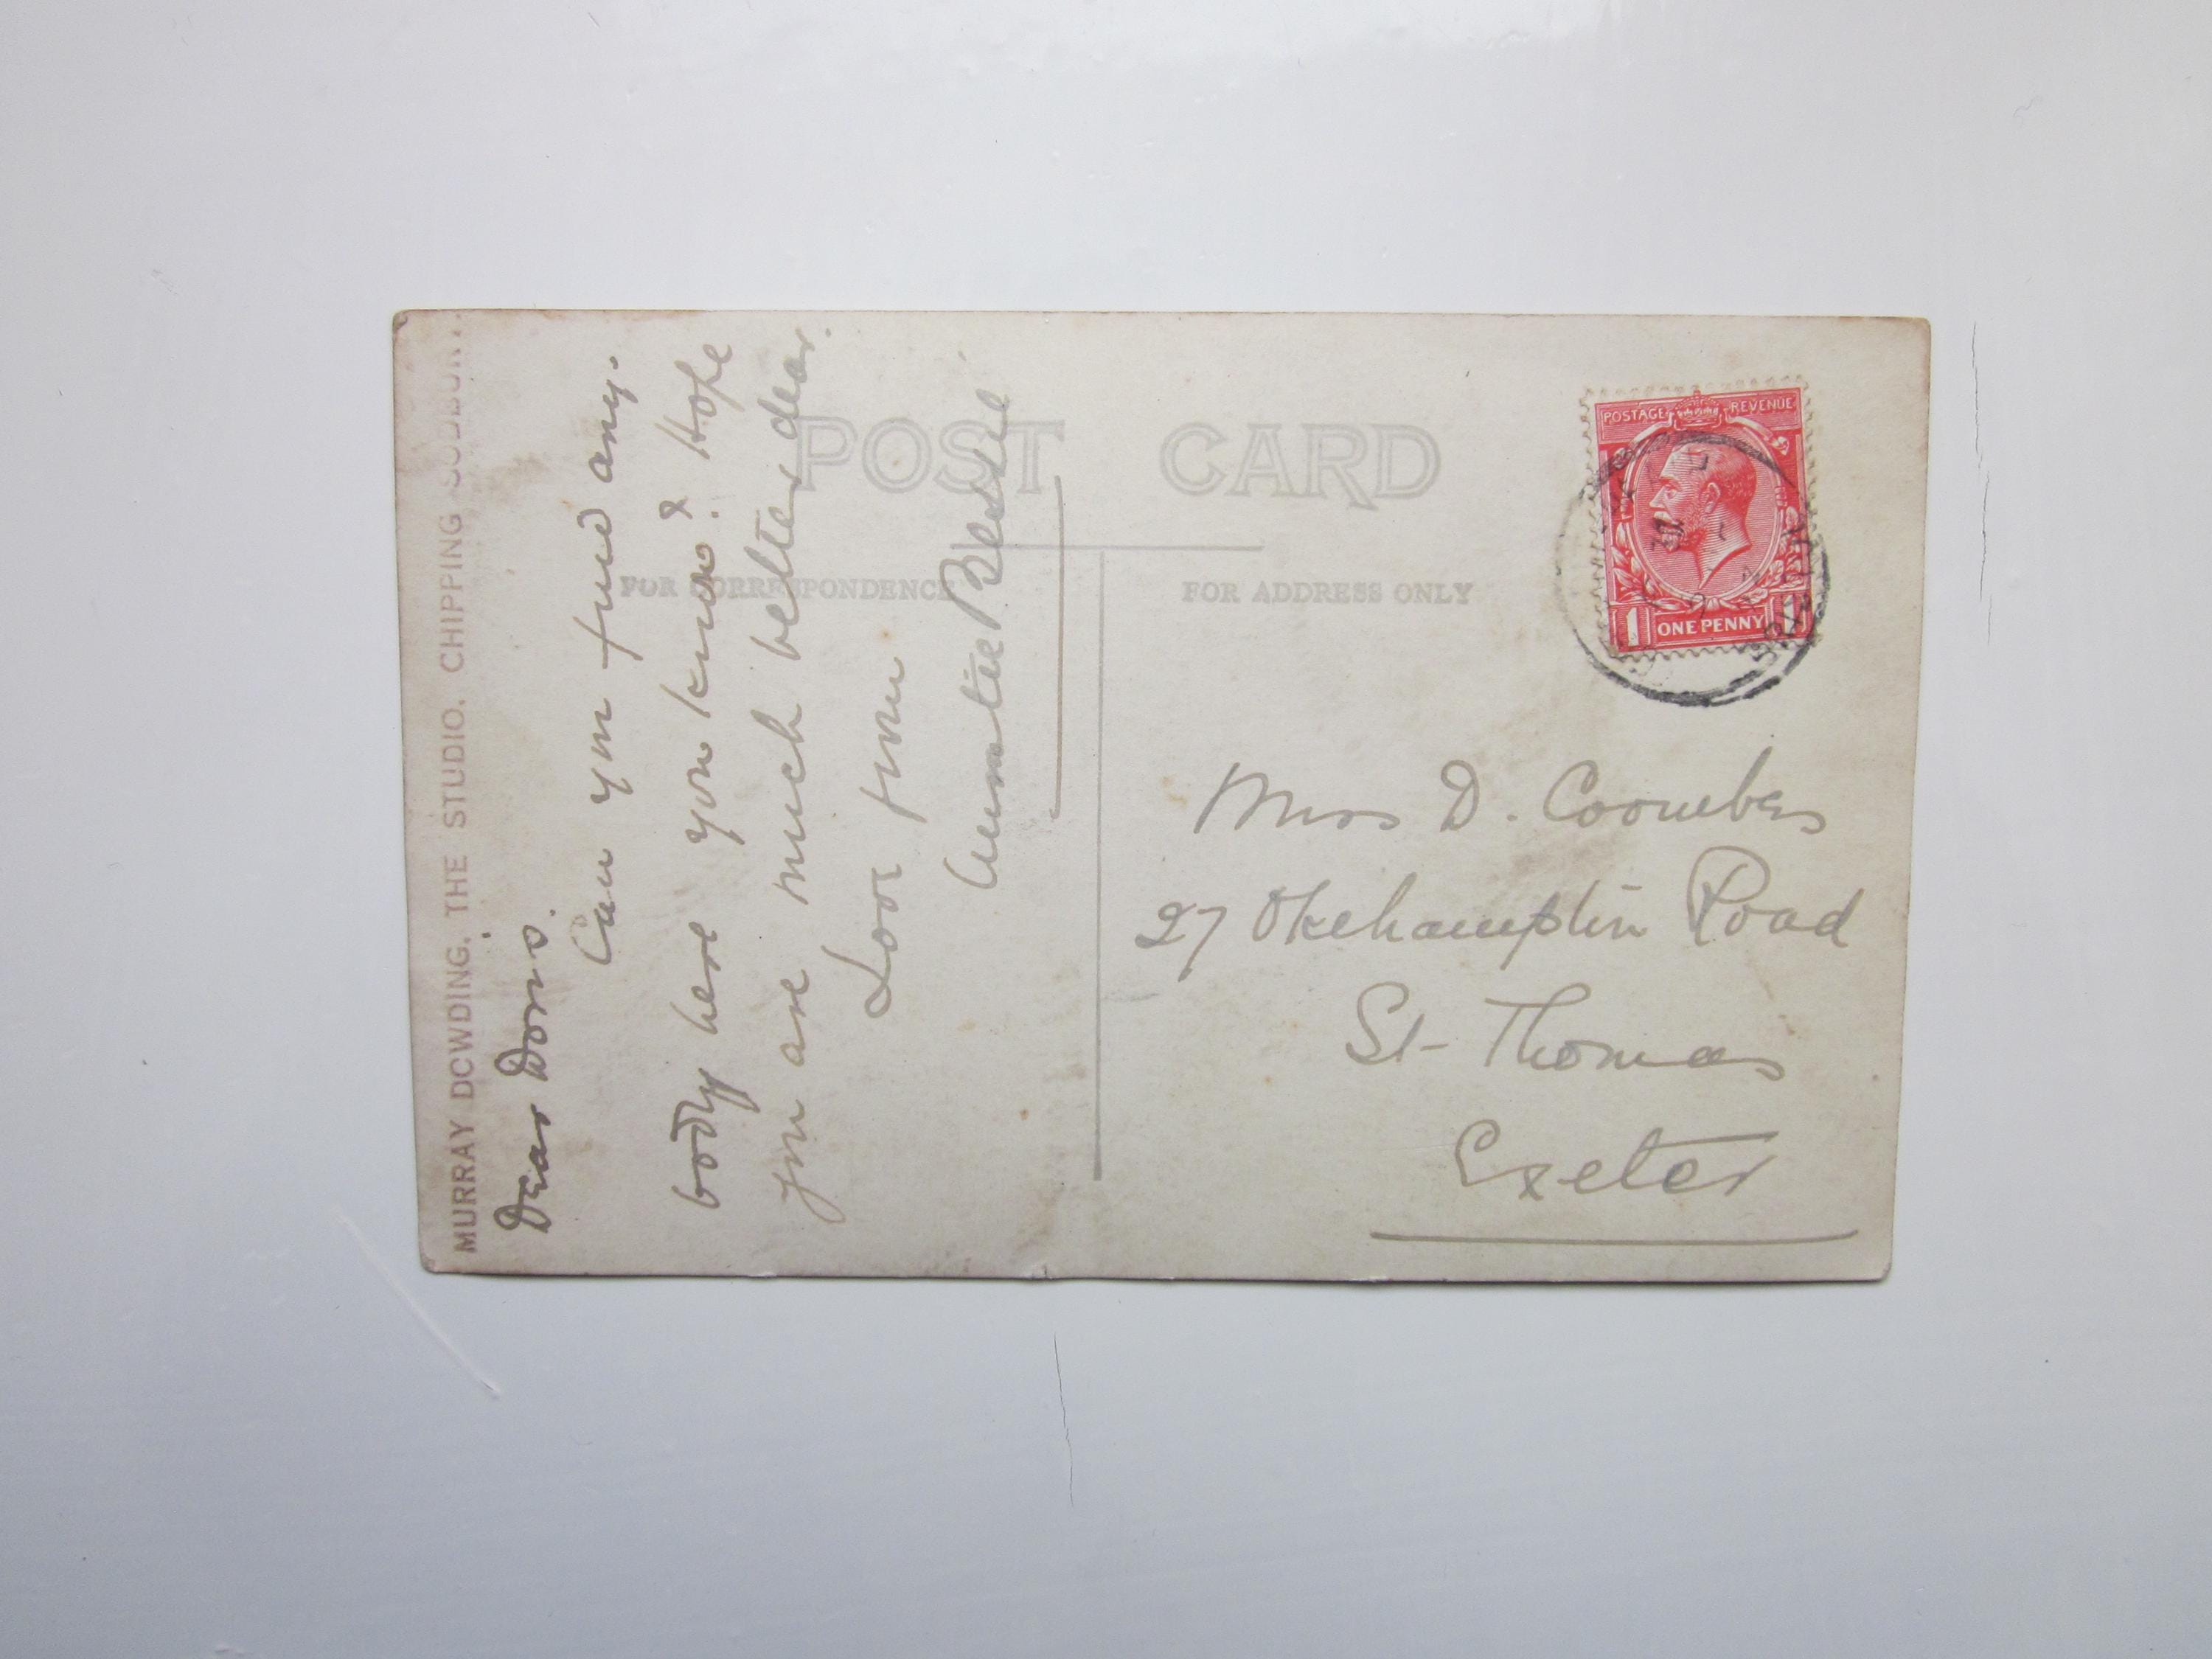 MURRAY DOWDING, THE STUDIO, CHIPPING SODBURY.
POST CARD
FOR CORRESPONDENCE
FOR ADDRESS ONLY
Dear Doris.
Can you find any.
body here you know? Hope
you are much better dear.
Love from
Auntie Bessie
POSTAGE REVENUE
1 ONE PENNY 1
Miss D. Coombes
27 Okehampton Road
St Thomas
Exeter